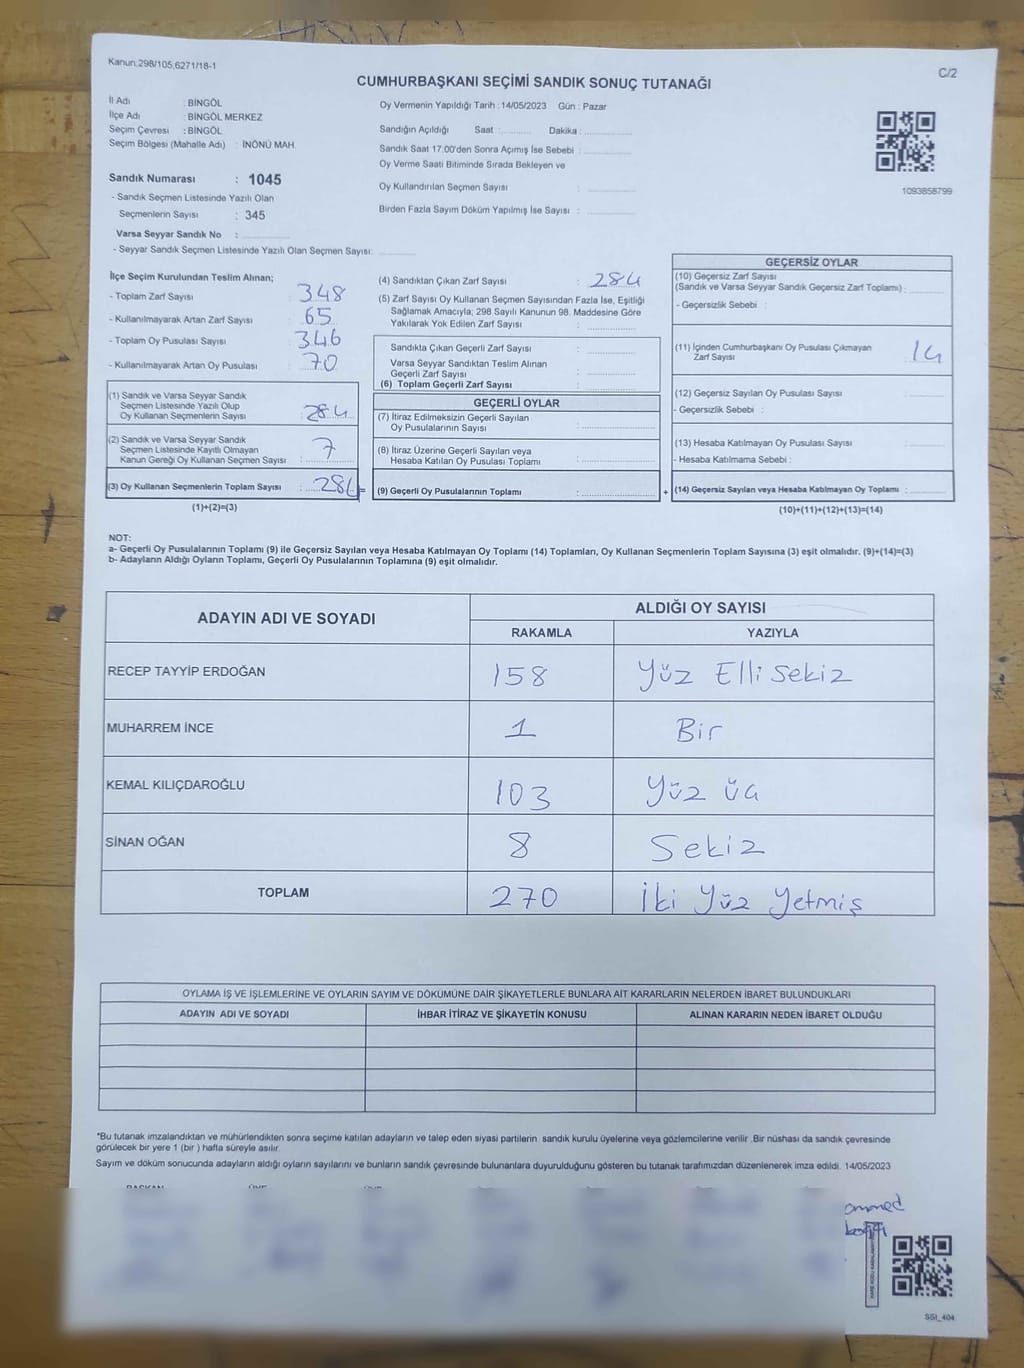 Kanun:298/105,6271/18-1
C/2
CUMHURBAŞKANI SEÇİMİ SANDIK SONUÇ TUTANAĞI
İl Adı : BİNGÖL
İlçe Adı : BİNGÖL MERKEZ
Seçim Çevresi : BİNGÖL
Seçim Bölgesi (Mahalle Adı) : İNÖNÜ MAH.
Sandık Numarası : 1045
- Sandık Seçmen Listesinde Yazılı Olan
Seçmenlerin Sayısı : 345
Varsa Seyyar Sandık No :
- Seyyar Sandık Seçmen Listesinde Yazılı Olan Seçmen Sayısı:
Oy Vermenin Yapıldığı Tarih : 14/05/2023 Gün : Pazar
Sandığın Açıldığı Saat : Dakika :
Sandık Saat 17:00'den Sonra Açımış İse Sebebi :
Oy Verme Saati Bitiminde Sırada Bekleyen ve
Oy Kullandırılan Seçmen Sayısı :
Birden Fazla Sayım Döküm Yapılmış İse Sayısı :
1093858799
İlçe Seçim Kurulundan Teslim Alınan;
- Toplam Zarf Sayısı : 348
- Kullanılmayarak Artan Zarf Sayısı : 65
- Toplam Oy Pusulası Sayısı : 346
- Kullanılmayarak Artan Oy Pusulası : 70
(1) Sandık ve Varsa Seyyar Sandık
Seçmen Listesinde Yazılı Olup
Oy Kullanan Seçmenlerin Sayısı : 284
(2) Sandık ve Varsa Seyyar Sandık
Seçmen Listesinde Kayıtlı Olmayan
Kanun Gereği Oy Kullanan Seçmen Sayısı : 7
(3) Oy Kullanan Seçmenlerin Toplam Sayısı : 284 =
(1)+(2)=(3)
(4) Sandıktan Çıkan Zarf Sayısı : 284
(5) Zarf Sayısı Oy Kullanan Seçmen Sayısından Fazla İse, Eşitliği
Sağlamak Amacıyla; 298 Sayılı Kanunun 98. Maddesine Göre
Yakılarak Yok Edilen Zarf Sayısı :
Sandıkta Çıkan Geçerli Zarf Sayısı :
Varsa Seyyar Sandıktan Teslim Alınan
Geçerli Zarf Sayısı :
(6) Toplam Geçerli Zarf Sayısı :
GEÇERLİ OYLAR
(7) İtiraz Edilmeksizin Geçerli Sayılan
Oy Pusulalarının Sayısı :
(8) İtiraz Üzerine Geçerli Sayılan veya
Hesaba Katılan Oy Pusulası Toplamı :
(9) Geçerli Oy Pusulalarının Toplamı : +
GEÇERSİZ OYLAR
(10) Geçersiz Zarf Sayısı
(Sandık ve Varsa Seyyar Sandık Geçersiz Zarf Toplamı) :
- Geçersizlik Sebebi :
(11) İçinden Cumhurbaşkanı Oy Pusulası Çıkmayan
Zarf Sayısı : 14
(12) Geçersiz Sayılan Oy Pusulası Sayısı :
- Geçersizlik Sebebi :
(13) Hesaba Katılmayan Oy Pusulası Sayısı :
- Hesaba Katılmama Sebebi :
(14) Geçersiz Sayılan veya Hesaba Katılmayan Oy Toplamı :
(10)+(11)+(12)+(13)=(14)
NOT:
a- Geçerli Oy Pusulalarının Toplamı (9) ile Geçersiz Sayılan veya Hesaba Katılmayan Oy Toplamı (14) Toplamları, Oy Kullanan Seçmenlerin Toplam Sayısına (3) eşit olmalıdır. (9)+(14)=(3)
b- Adayların Aldığı Oyların Toplamı, Geçerli Oy Pusulalarının Toplamına (9) eşit olmalıdır.
ADAYIN ADI VE SOYADI ALDIĞI OY SAYISI
RAKAMLA YAZIYLA
RECEP TAYYİP ERDOĞAN 158 Yüz Elli Sekiz
MUHARREM İNCE 1 Bir
KEMAL KILIÇDAROĞLU 103 Yüz üç
SİNAN OĞAN 8 Sekiz
TOPLAM 270 İki Yüz Yetmiş
OYLAMA İŞ VE İŞLEMLERİNE VE OYLARIN SAYIM VE DÖKÜMÜNE DAİR ŞİKAYETLERLE BUNLARA AİT KARARLARIN NELERDEN İBARET BULUNDUKLARI
ADAYIN ADI VE SOYADI İHBAR İTİRAZ VE ŞİKAYETİN KONUSU ALINAN KARARIN NEDEN İBARET OLDUĞU
*Bu tutanak imzalandıktan ve mühürlendikten sonra seçime katılan adayların ve talep eden siyasi partilerin sandık kurulu üyelerine veya gözlemcilerine verilir .Bir nüshası da sandık çevresinde
görülecek bir yere 1 (bir ) hafta süreyle asılır.
Sayım ve döküm sonucunda adayların aldığı oyların sayılarını ve bunların sandık çevresinde bulunanlara duyurulduğunu gösteren bu tutanak tarafımızdan düzenlenerek imza edildi. 14/05/2023
SSI_404